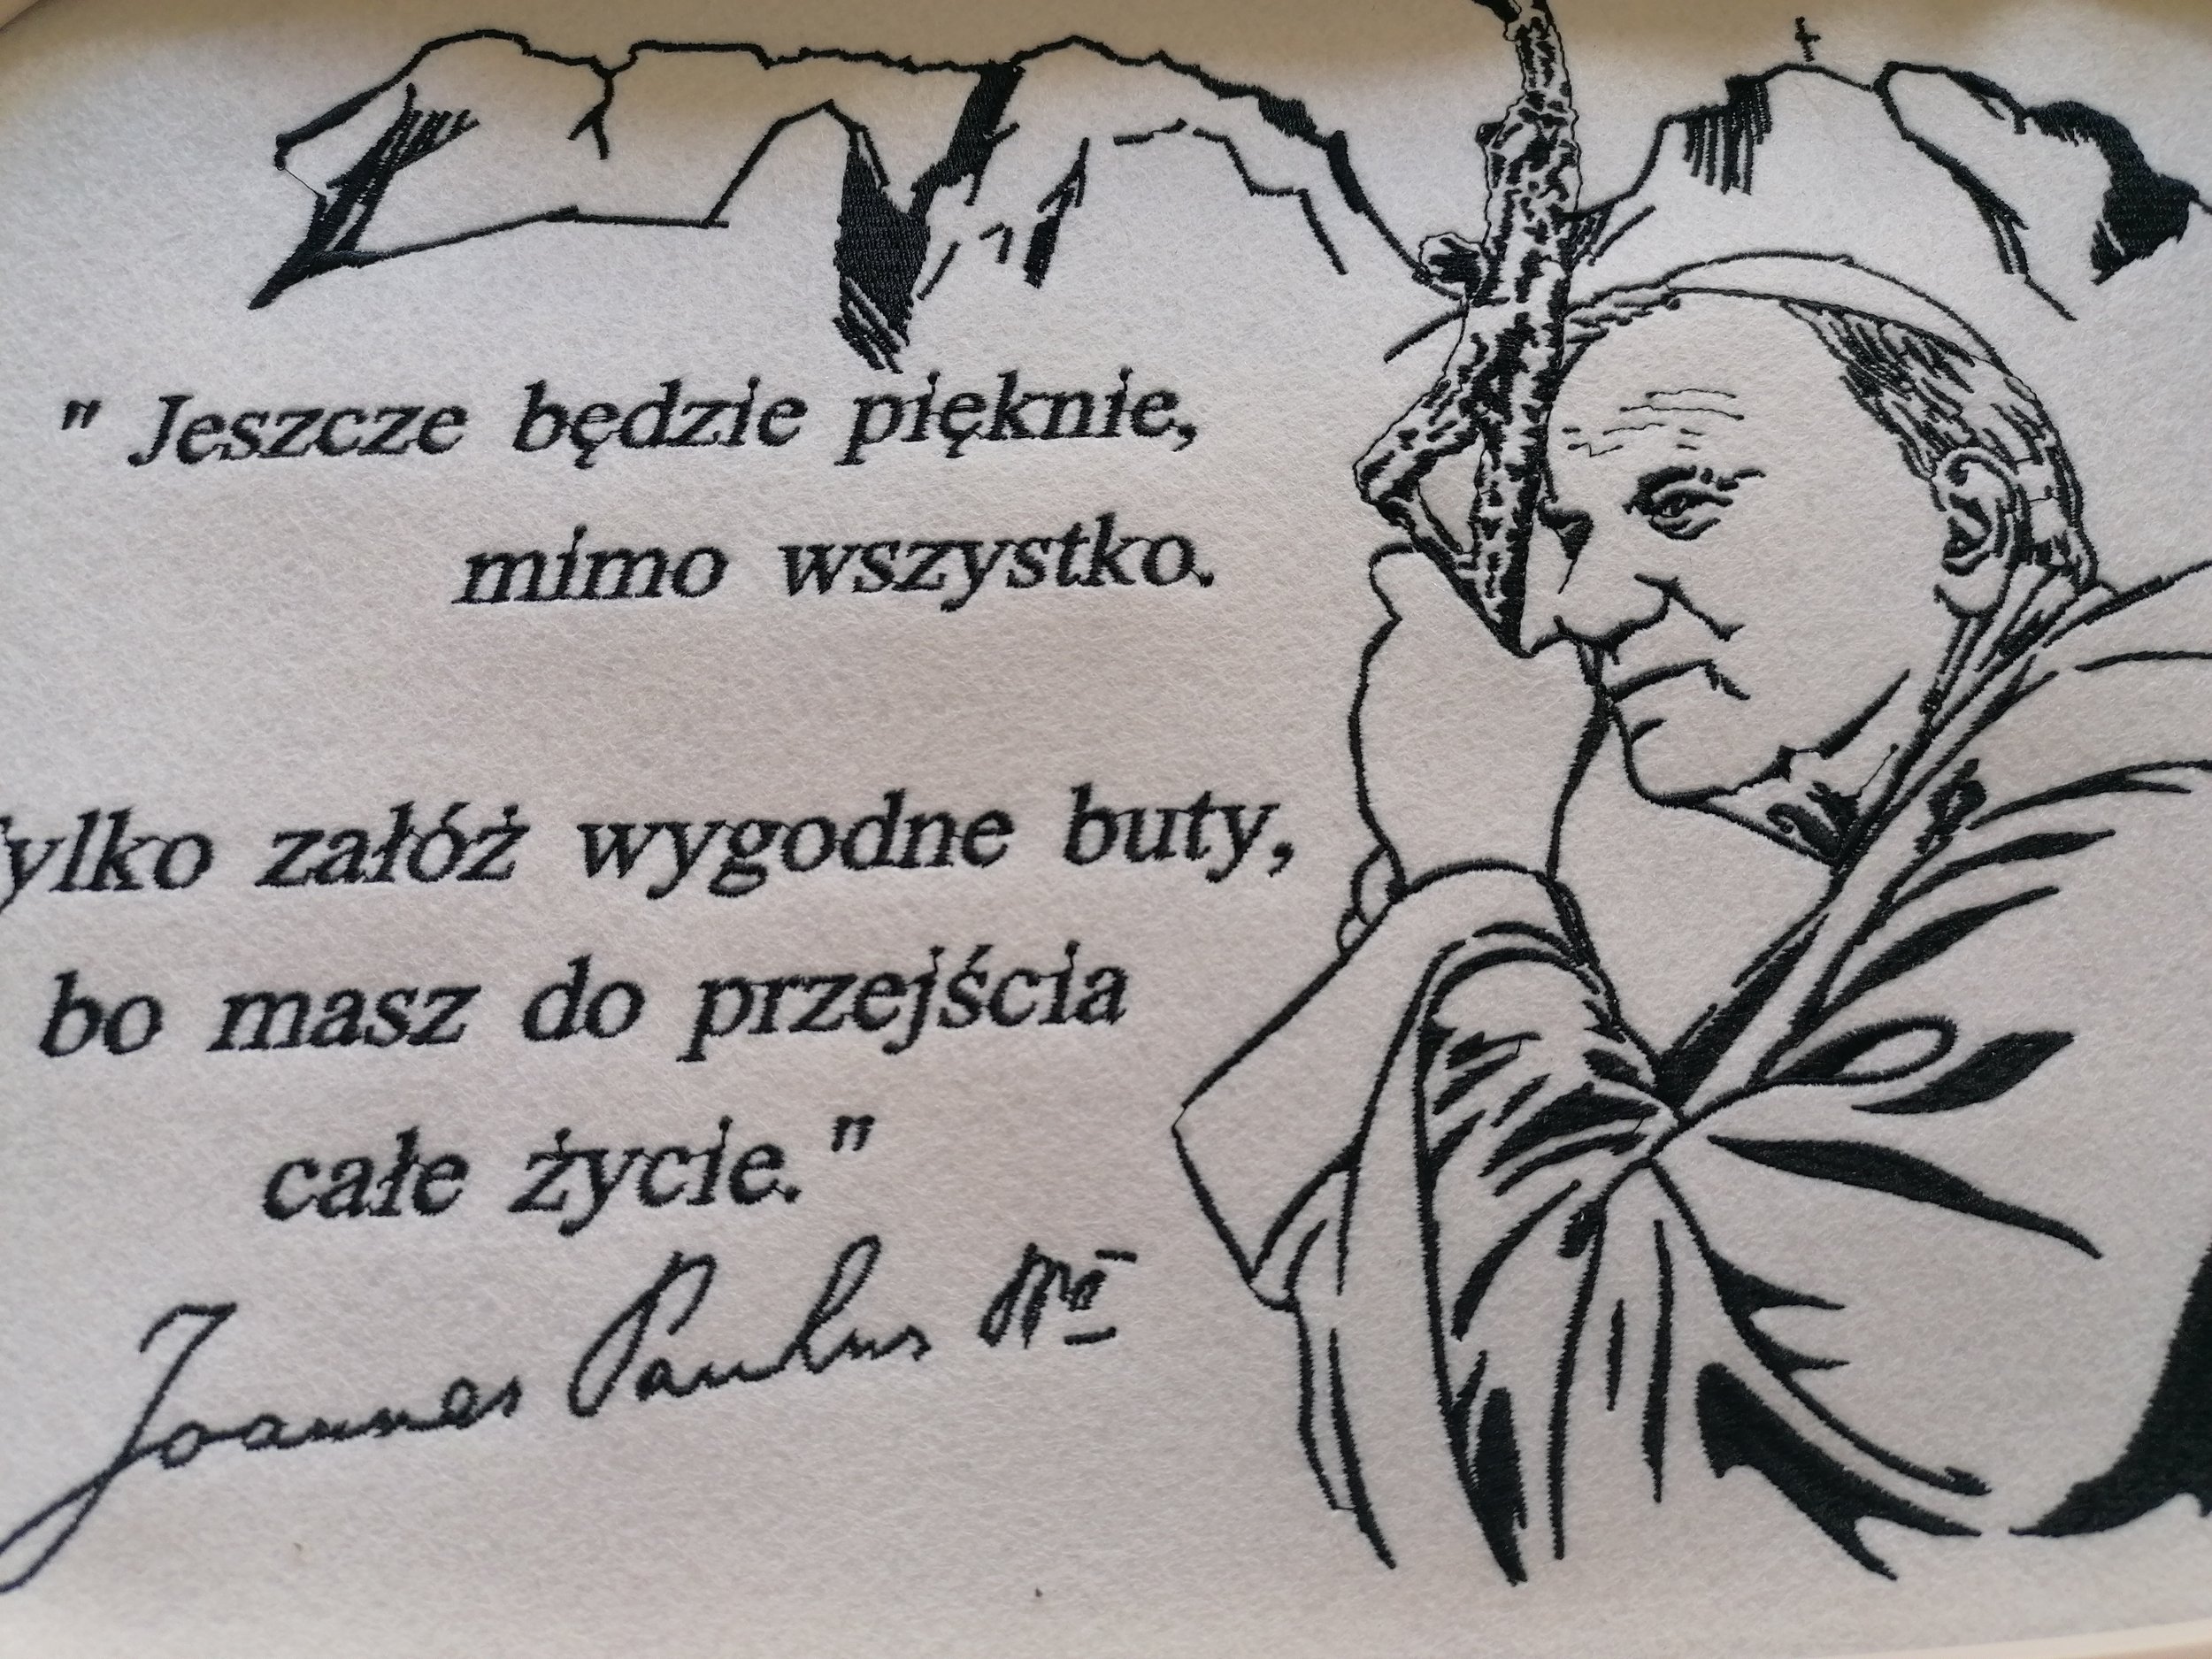 " Jeszcze będzie pięknie,
mimo wszystko.
Tylko załóż wygodne buty,
bo masz do przejścia
całe życie."
Joannes Paulus II